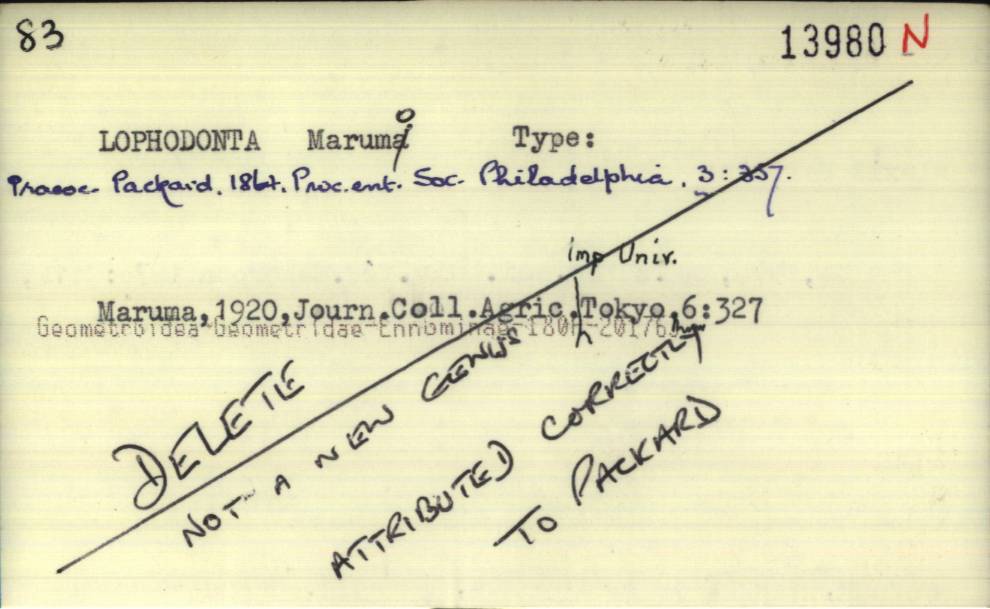 83
13980 N
LOPHODONTA Marumo Type:
Praeoc. Packard, 1864. Proc. ent. Soc. Philadelphia, 3: 357.
imp Univ.
Maruma, 1920, Journ. Coll. Agric. Tokyo, 6:327
Geometroidea Geometridae Ennominae
DELETE
NOT A NEW GENUS
ATTRIBUTED CORRECTLY
TO PACKARD